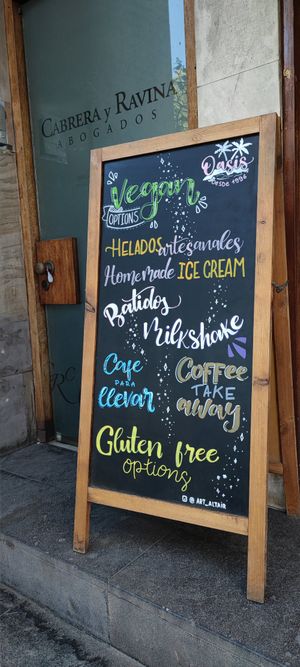 CABRERA y RAVINA
ABOGADOS
Oasis
DESDE 1986
Vegan
OPTIONS
HELADOS artesanales
Homemade ICE CREAM
Batidos
Milkshake
Cafe
PARA
llevar
COFFEE
TAKE
away
Gluten free
options
@ART_ALTAIR